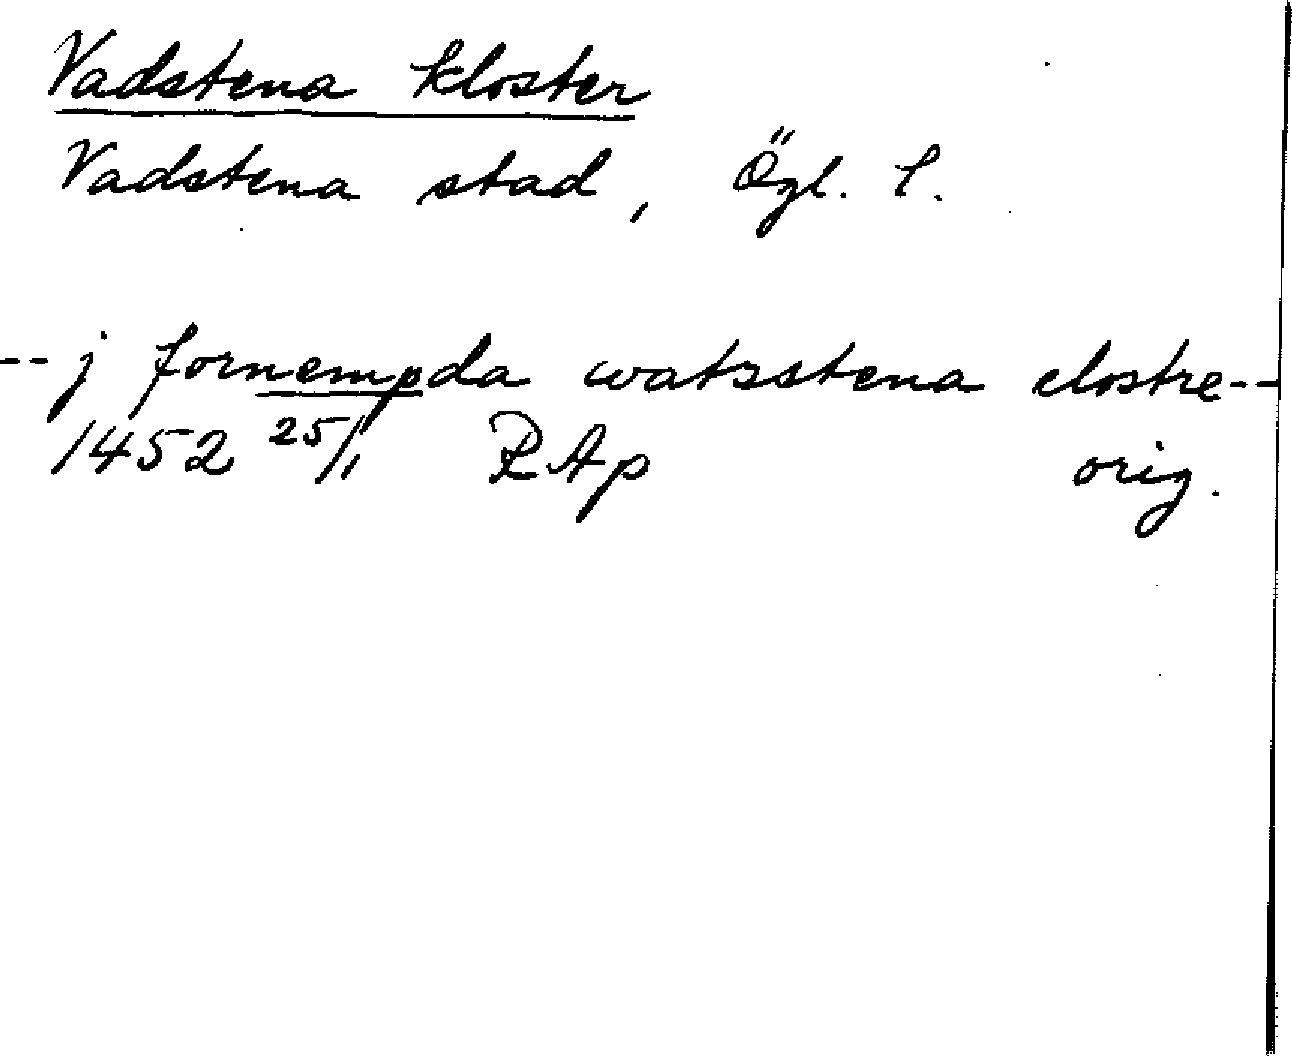 Vadstena kloster
Vadstena stad, Ögl. l.
-- j fornempda watzstena clostre --
1452 25/1 RAp orig.